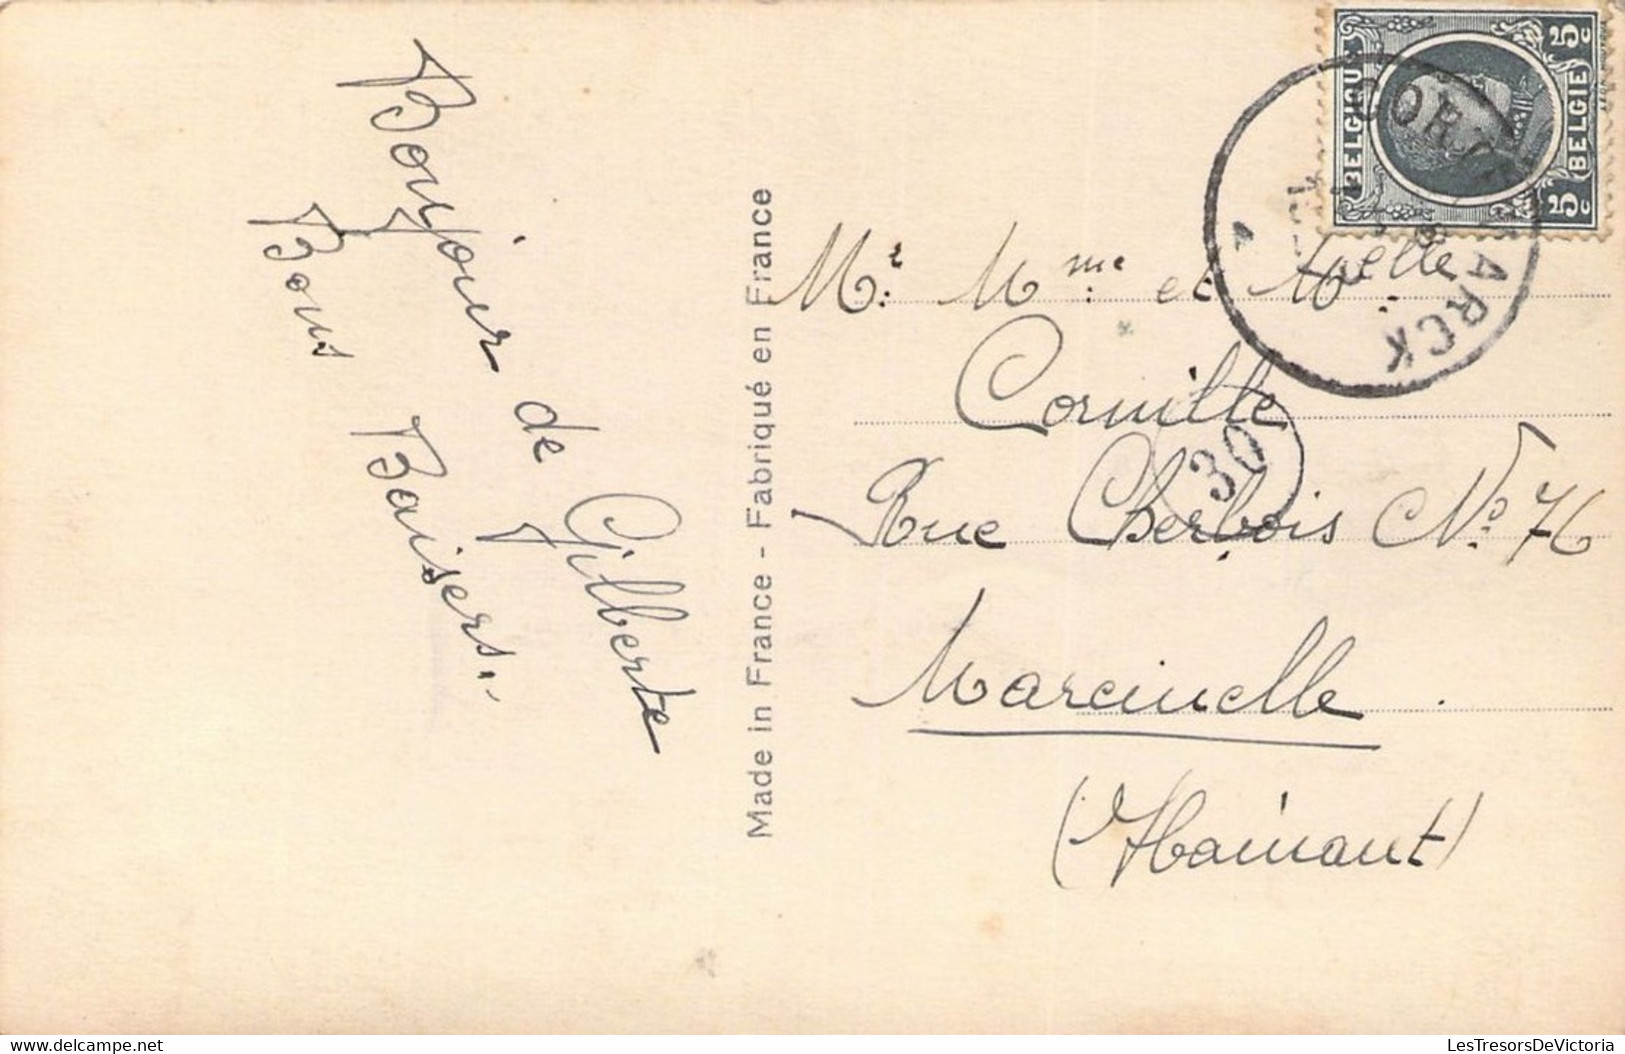 Bonjour de
Gilberte
Bons Baisers.
Made in France - Fabriqué en France
BELGIQUE
BELGIE
5c
5c
ARCK
30
Mr. Mme et Melle
Cornille
Rue Cherbois No. 76
Marcinelle.
(Hainaut)
www.delcampe.net
LesTresorsDeVictoria